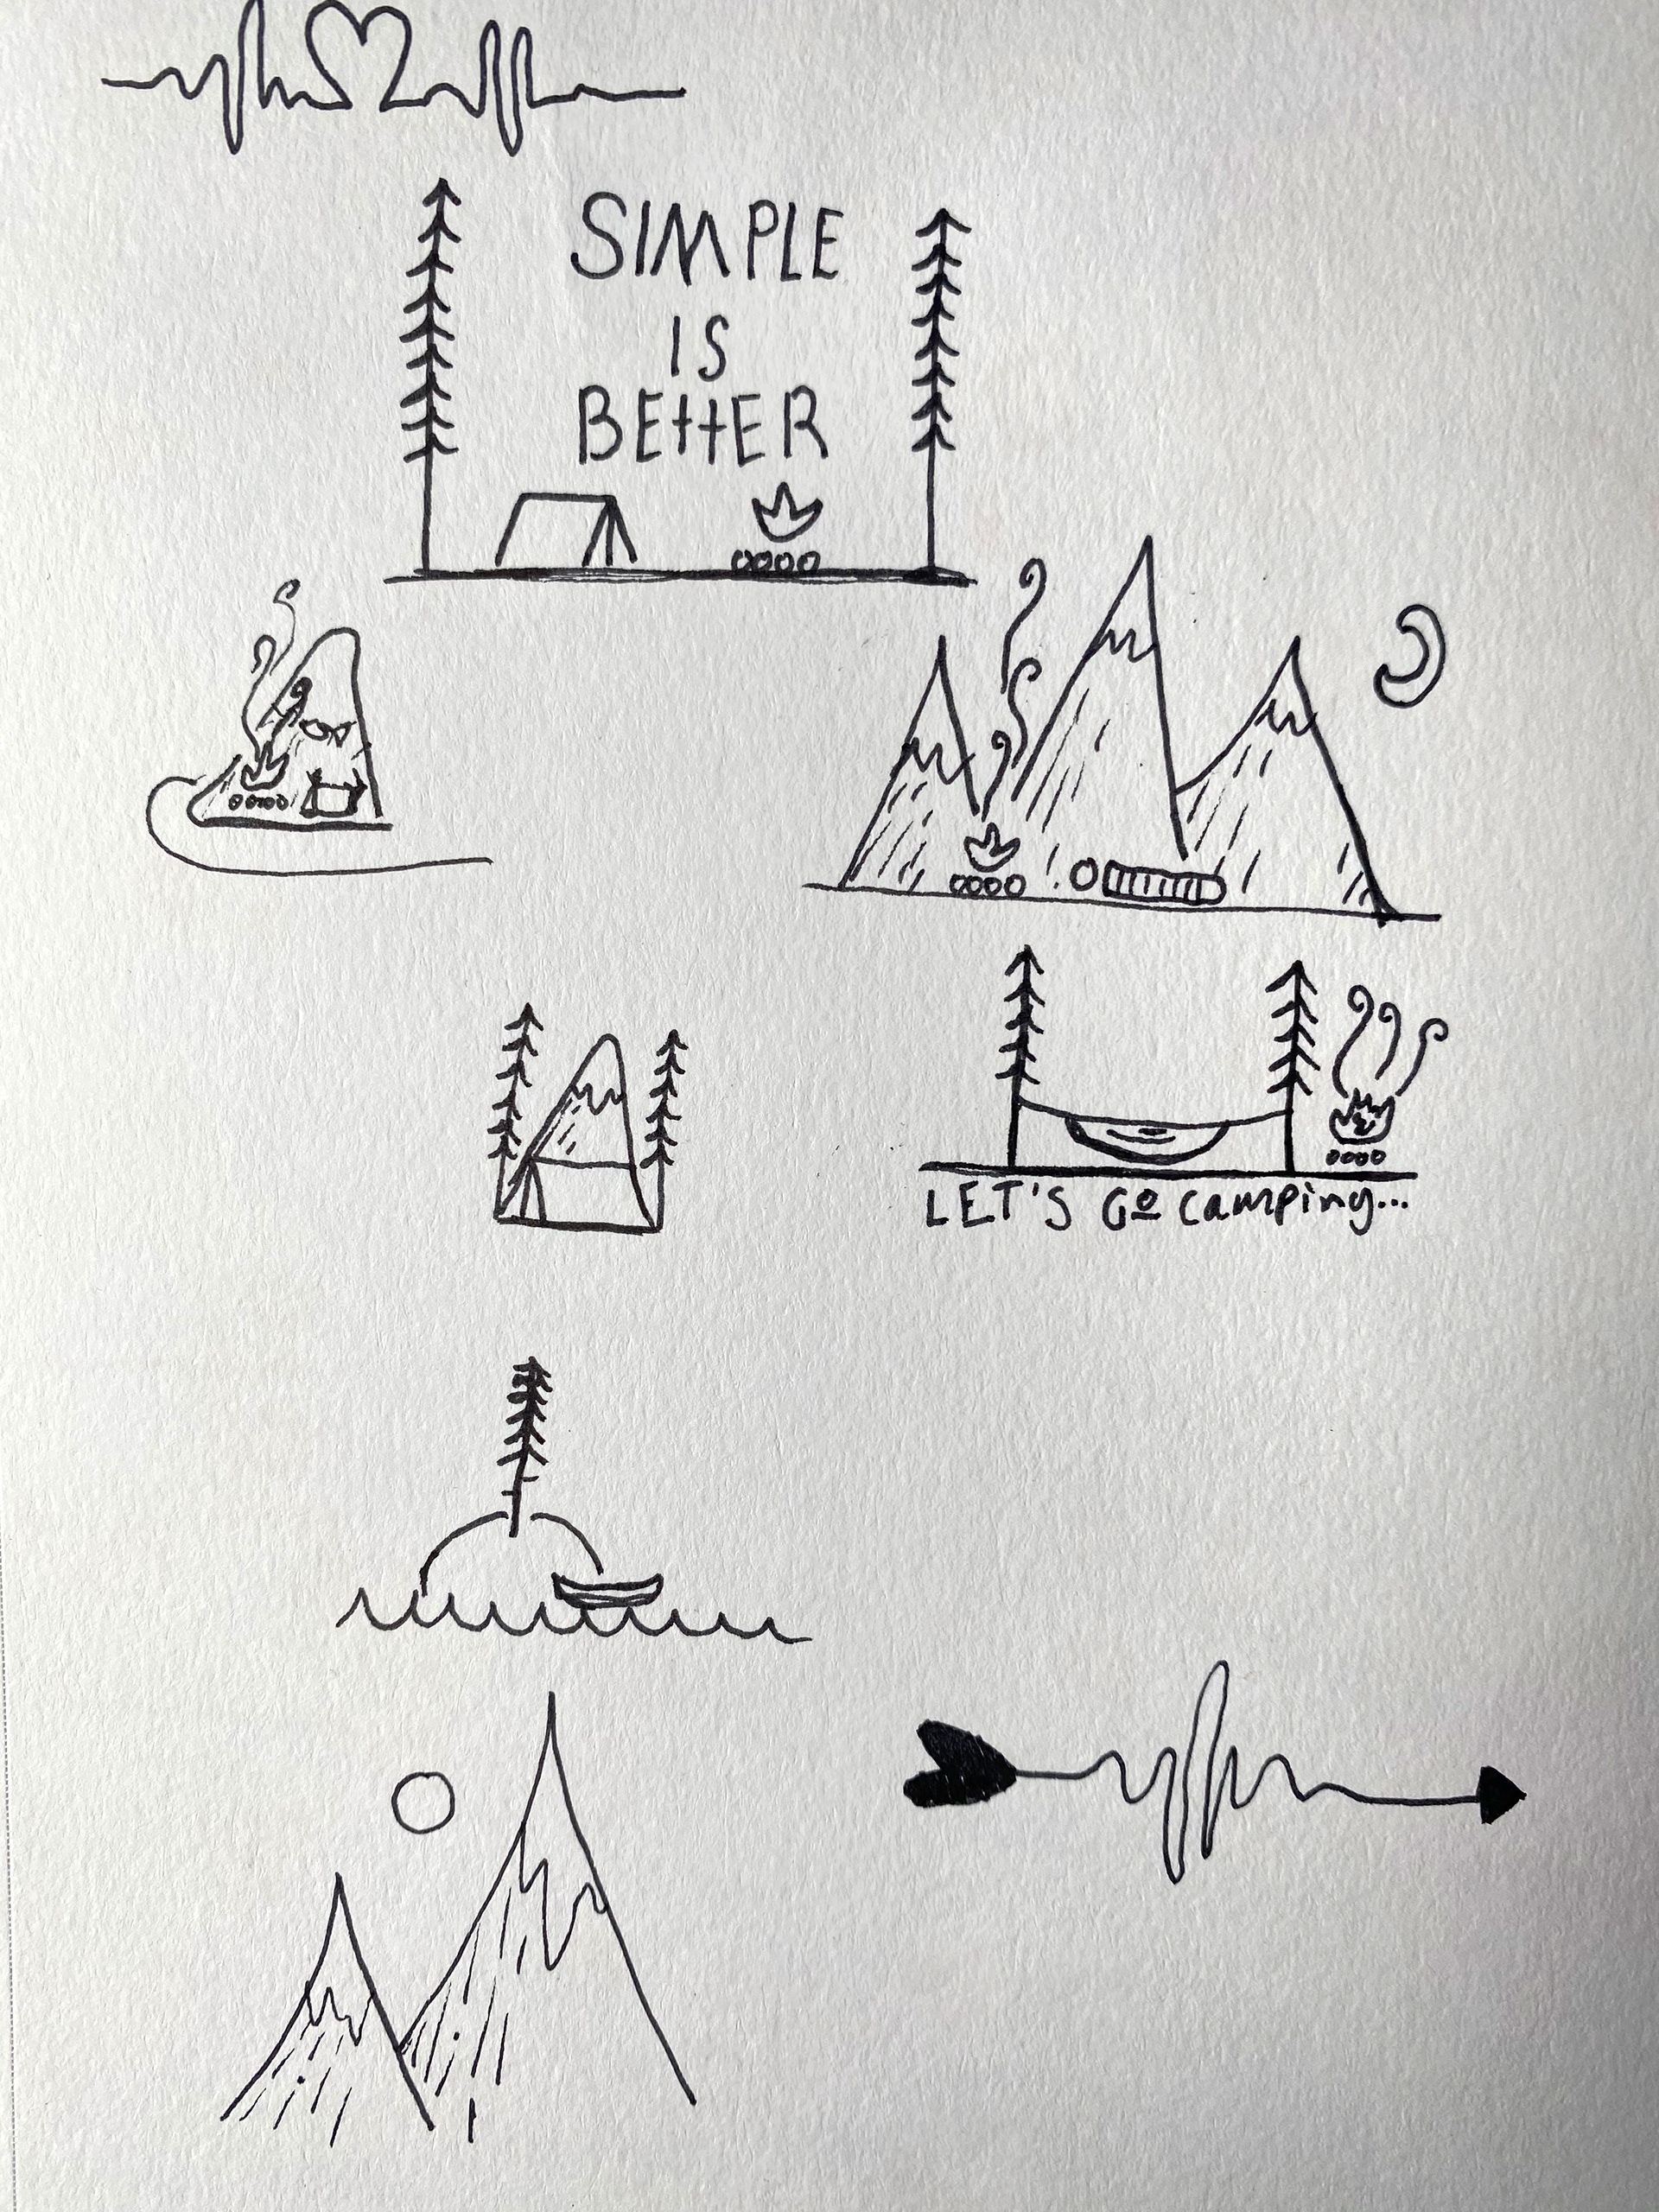 SIMPLE
IS
BEttER
LET'S Go camping...